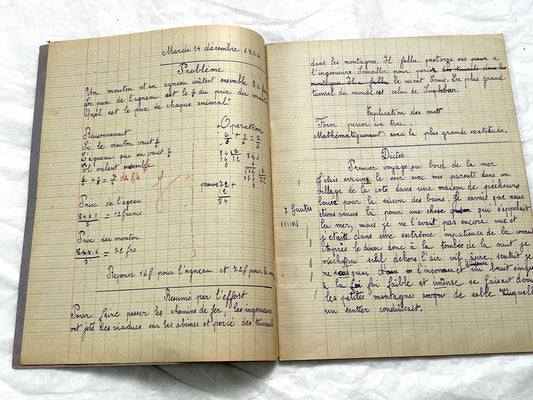 Mardi 14 décembre 192
Problème
Un mouton et un agneau coûtent ensemble 84 f
Le prix de l'agneau est le du prix du mouton
Quel est le prix de chaque animal.
Raisonnement
Si le mouton vaut
l'agneau
Ils valent ensemble
Prix de l'agneau
= 12 francs
Prix du mouton
= 72 frs
Réponse 12f pour l'agneau et 72f pour le
Opération
84
preuve 72 +
12
84
Résumé par l'effort
Pour faire passer les chemins de fer, les ingénieurs
ont jeté des viaducs sur les abîmes et percé des tunnels
dans les montagnes. Il fallu quatorze ans pour à
l'ingénieur Someiller pour percer des tunnels dans les
montagnes. Il fallu le mont Cenis. Le plus grand
tunnel du monde est celui de Simplon
Explication des mots
Forer : percer un trou.
Mathématiquement : avec la plus grande exactitude.
Dictée
Premier voyage au bord de la mer
J'étais arrivé le soir avec mes parents dans un
village de la côte dans une maison de pêcheurs
louée pour la saison des bains. Je savais que nous
étions venus là pour une chose qui s'appelait
la mer, mais je ne l'avais pas encore vue et
j'étais dans une extrême impatience de la connaître
Après le dîner donc à la tombée de la nuit je
m'échappai seul dehors. L'air vif, âpre, sentait je
ne sais quoi, d'inconnu et un bruit singulier
à la fois faible et intense se faisait
les petites montagnes de sable
un sentier conduisait.
7 fautes